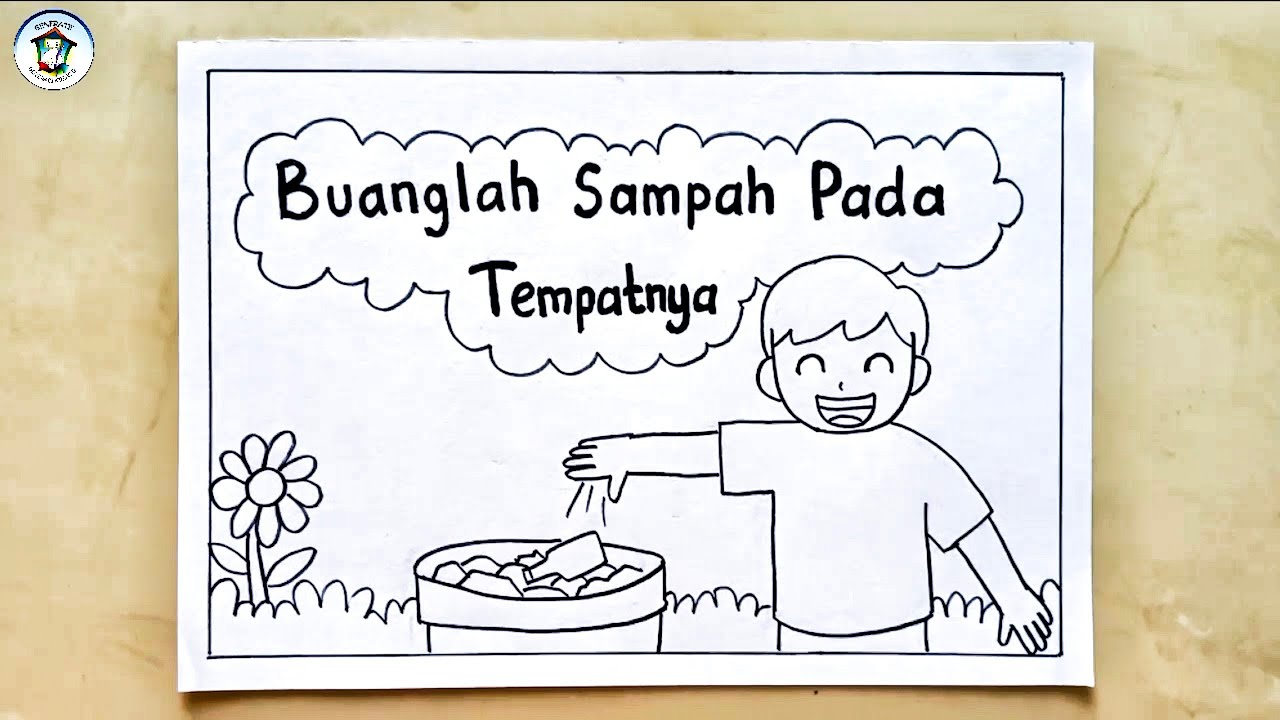 Buanglah Sampah Pada
Tempatnya